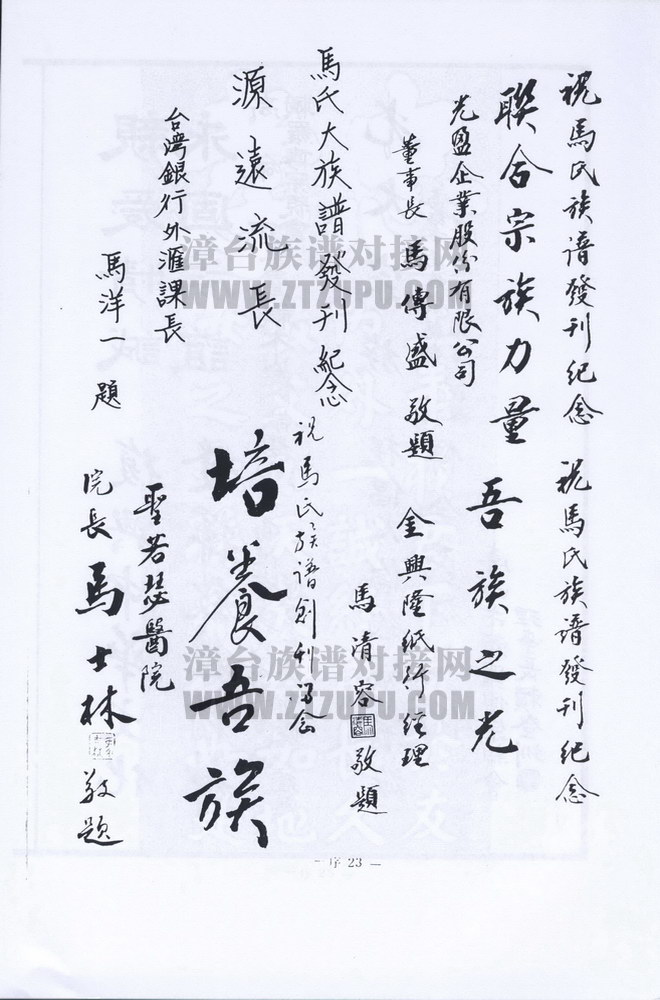 祝馬氏族譜發刊紀念
聯合宗族力量
光盈企業股份有限公司
董事長 馬傳盛 敬題
祝馬氏族譜發刊紀念
吾族之光
金興隆紙行經理
馬清容 敬題
馬氏大族譜發刊紀念
源遠流長
台灣銀行外滙課長
馬洋一 題
祝馬氏族譜創刊紀念
培養吾族
聖若瑟醫院
院長 馬士林 敬題
— 序 23 —
漳台族谱对接网
WWW.ZTZUPU.COM
漳台族谱对接网
WWW.ZTZUPU.COM